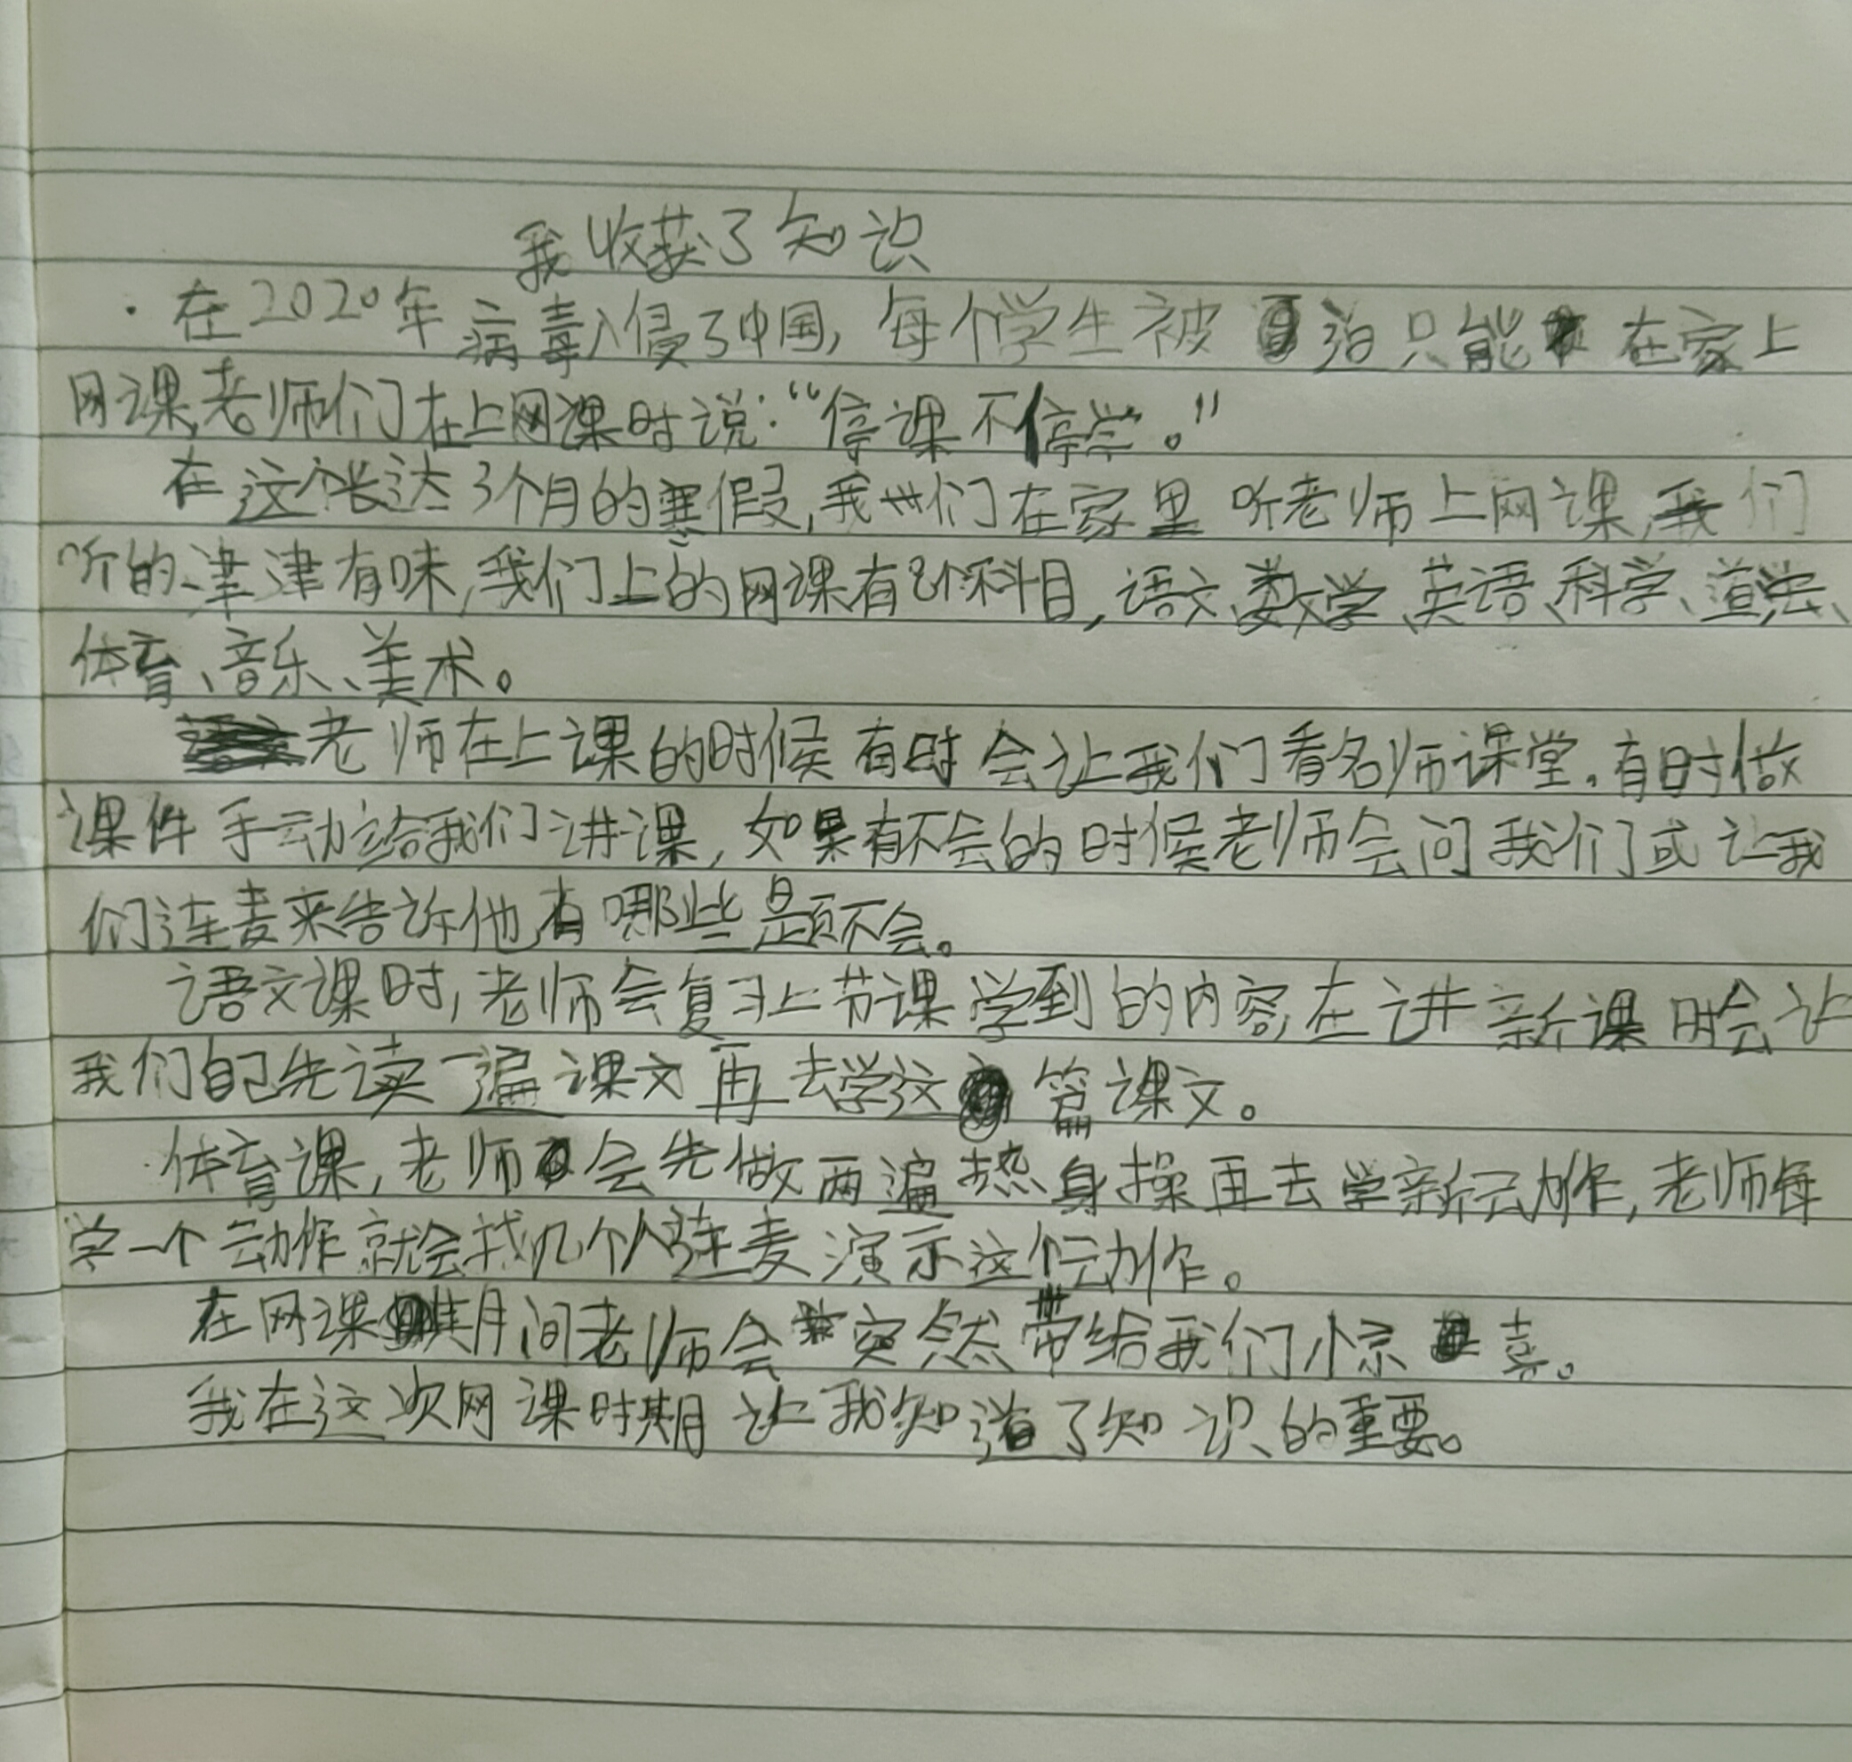 我收获了知识
在2020年病毒入侵了中国,每个学生被迫只能在家上
网课,老师们在上网课时说:“停课不停学。”
在这个长达3个月的寒假,我们在家里听老师上网课,我们
听的津津有味,我们上的网课有8个科目,语文、数学、英语、科学、道法、
体育、音乐、美术。
老师在上课的时候有时会让我们看名师课堂。有时做
课件手动给我们讲课,如果有不会的时候老师会问我们或让我
们连麦来告诉他有哪些题不会。
语文课时,老师会复习上节课学到的内容,在讲新课时会让
我们自己先读一遍课文再去学这篇课文。
体育课,老师会先做两遍热身操再去学新动作,老师每
学一个动作就会找几个人连麦演示这个动作。
在网课期间老师会突然带给我们小惊喜。
我在这次网课时期让我知道了知识的重要。